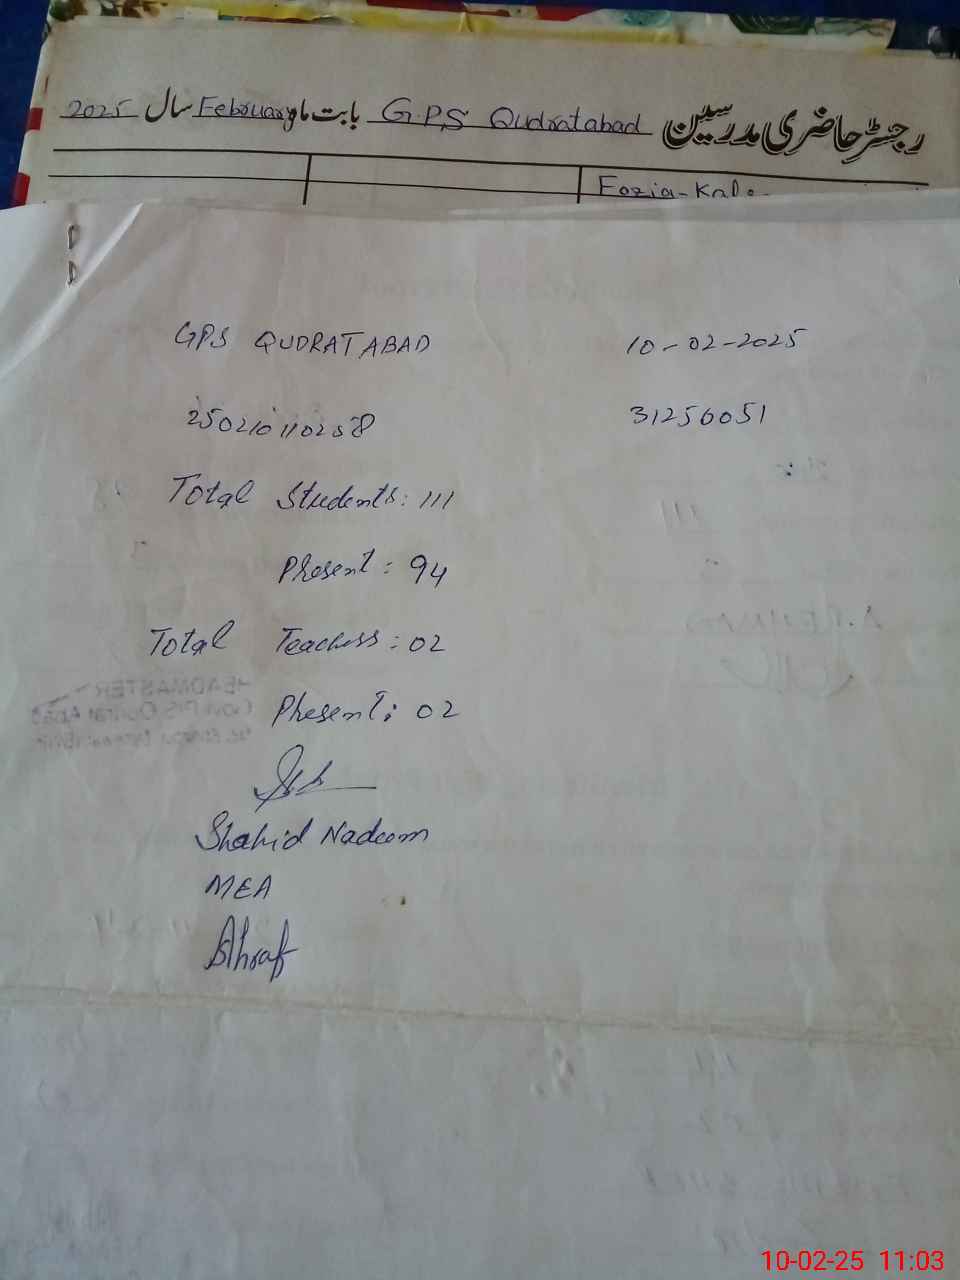 رجسٹر حاضری مدرسین G.P.S Qudratabad بابت ماہ February سال 2025
Fozia-
GPS QUDRATABAD 10-02-2025
250210110258 31256051
Total Students: 111
Present: 94
Total Teachers: 02
Present: 02
Shahid Nadeem
MEA
Ashraf
HEADMASTER
10-02-25 11:03